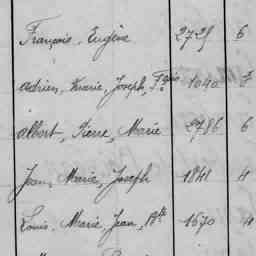 François, Eugène 2729 6
Adrien, Marie, Joseph, Fçois 1040 7
Albert, Pierre, Marie 2786 6
Jean, Marie, Joseph 1848 4
Louis, Marie, Jean, Bte 1670 4